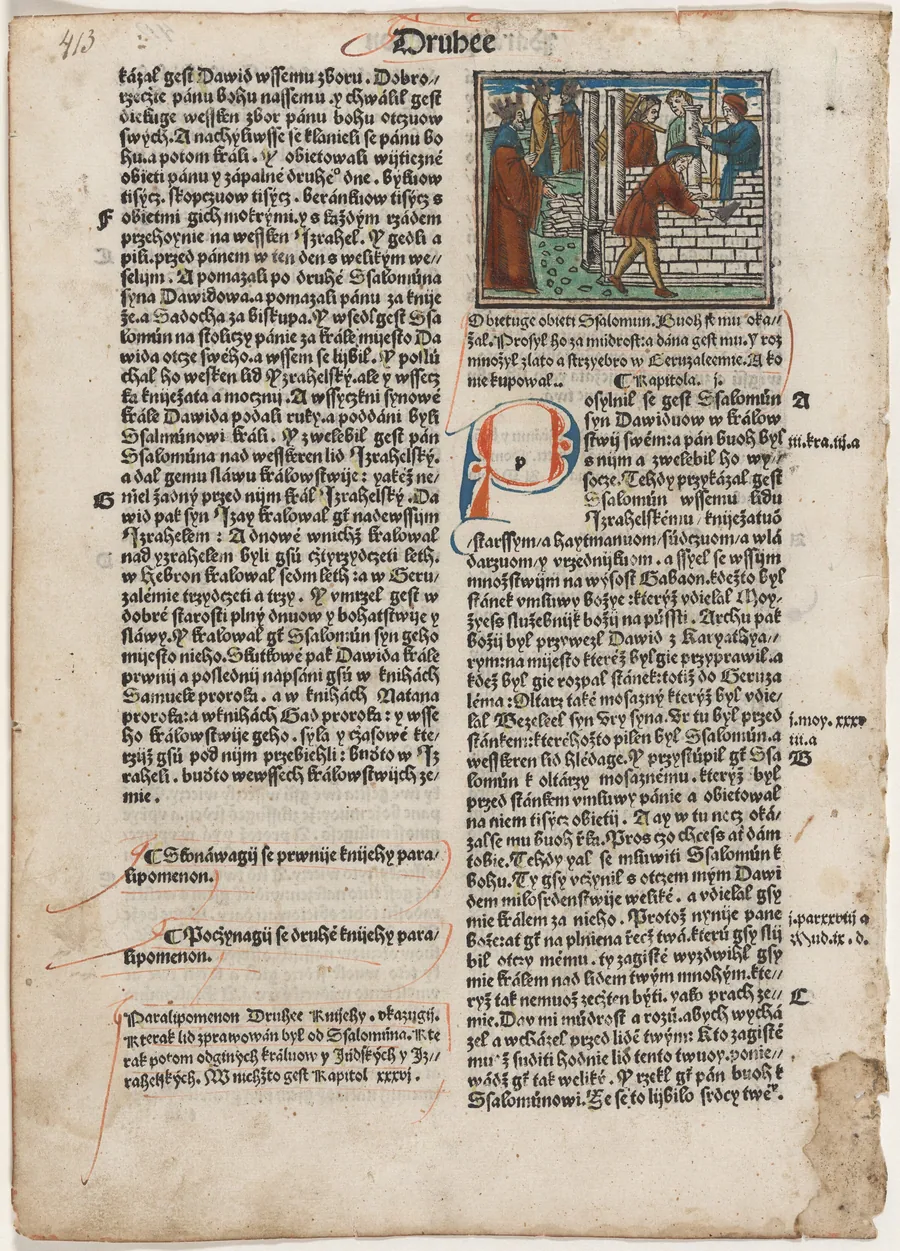 413
Druhee
kázal gest Dawid wssemu zboru. Dobro//
rzeczte pánu bohu nassemu. y chwálil gest
diekuge wessken zbor pánu bohu otczuow
swých. A nachyliwsse se klanieli se pánu bo
hu. a potom králi. Y obietowali wijtiezné
obieti pánu y zápalné druhé° dne. bykuow
tisýcz. skopczuow tisýcz. beránkuow tisýcz s
F
obietmi gich mokrými. y s každým rzádem
przehognie na wessken Jzrahel. Y gedli a
pili. przed pánem w ten den s welikým we//
selijm. A pomazali po druhé Ssalomúna
syna Dawidowa. a pomazali pánu za knije
že. a Sadocha za biskupa. Y wsedl gest Ssa
lomún na stoliczy pánie za krále mijesto Da
wida otcze swého. a wssem se lijbil. Y poslú
chal ho wesken lid Yzrahelský. ale y wssecz
ka kniježata a mocznij. A wssyczkni synowé
krále Dawida podali ruky. a poddáni byli
Ssalmúnowi králi. Y zwelebil gest pán
Ssalomúna nad wesskeren lid Jzrahelský.
a dal gemu sláwu králowstwije: yakéž ne/
G
niel žádný przed nijm král Jzrahelský. Da
wid pak syn Jzay kralowal gt nadewssijm
Jzrahelem: A dnowé wnichž kralowal
nad yzrahelem byli gsú cztyrzydczeti leth.
w Hebron kralowal sedm leth: a w Geru/
zalémie trzydczeti a trzy. Y vmrzel gest w
dobré starosti plný dnuow y bohatstwije y
sláwy. Y kralowal gt Ssalomún syn geho
mijesto nieho. Skutkowé pak Dawida krále
prwnij a poslednij napsáni gsú w knihách
Samuele proroka. a w knihách Natana
proroka: a wknihách Gad proroka: y wsse
ho králowstwije geho. syla y czasowé kte/
rzijž gsú pod nijm przebiehli: buďto w Jz
raheli. buďto wewssech králowstwijch ze/
mie.
¶ Skonáwagij se prwnije knijehy para/
lipomenon.
¶ Poczynagij se druhé knijehy para/
lipomenon.
Paralipomenon Druhee Knijehy. okazugij.
Kterak lid zprawowán byl od Ssalomúna. Kte
rak potom odginych králuow y Júdských y Jz//
rahelských. W nichžto gest Kapitol xxxvj.
Obietuge obieti Ssalomun. Buoh st mu oka//
žal. Prosyl ho za múdrost: a dána gest mu. Y roz
množyl zlato a strzyebro w Geruzaleemie. A ko
nie kupowal..
¶ Kapitola. j.
p
osylnil se gest Ssalomún
A
syn Dawiduow w králow
stwij swém: a pán buoh byl
iii.kra.iij.a
s nijm a zwelebil ho wy//
socze. Tehdy przykázal gest
Ssalomún wssemu lidu
Jzrahelskému / kniježatuō
/ starssym/ a haytmanuom/ súdczuom/ a wlá
darzuom/ y vrzednijkuom. a ssyel se wssijm
množstwijm na wýsost Gabaon. kdežto byl
stánek vmluwy božye: kterýž vdielal Moy-
žyess služebnijk božij na pússti. Archu pak
božij byl przywezl Dawid z Karyathya//
rym: na mijesto kteréž byl gie przyprawil. a
kdež byl gie rozpal stánek: totiž do Geruza
léma: Oltarz také mosazný kterýž byl vdie-
lal Bezeleel syn Vry syna. Vr tu byl przed
j.moy. xxxv
stánkem: kteréhožto pilen byl Ssalomún. a
iii.a
wesskeren lid hledage. Y przystúpil gt Ssa
B
lomún k oltárzy mosaznému. kterýž byl
przed stánkem vmluwy pánie a obietowal
na niem tisýcz obietij. A ay w tu nocz oká/
zal se mu buoh rka. Pros czo chcess at dám
tobie. Tehdy yal se mluwiti Ssalomún k
bohu. Ty gsy vczynil s otczem mým Dawi
dem milosrdenstwije weliké. a vdielal gsy
mie králem za nieho. Protož nynije pane
j.par xxviij a
bože: at gt na plniena rzecž twá. kterú gsy slij
Mud.ix. d.
bil otczy mému. ty zagisté wyzdwihl gsy
mie králem nad lidem twým mnohým. kte//
rýž tak nemuož zecžten býti. yako prach ze//
C
mie. Day mi múdrost a rozū. abych wychá
zel a wcházel przed lidē twým: Kto zagisté
mu°ž suditi hodnie lid tento twuoy. ponie//
wádž gt tak weliké. Y rzekl gt pán buoh k
Ssalomúnowi. Že se to lijbilo srdcy twé°.